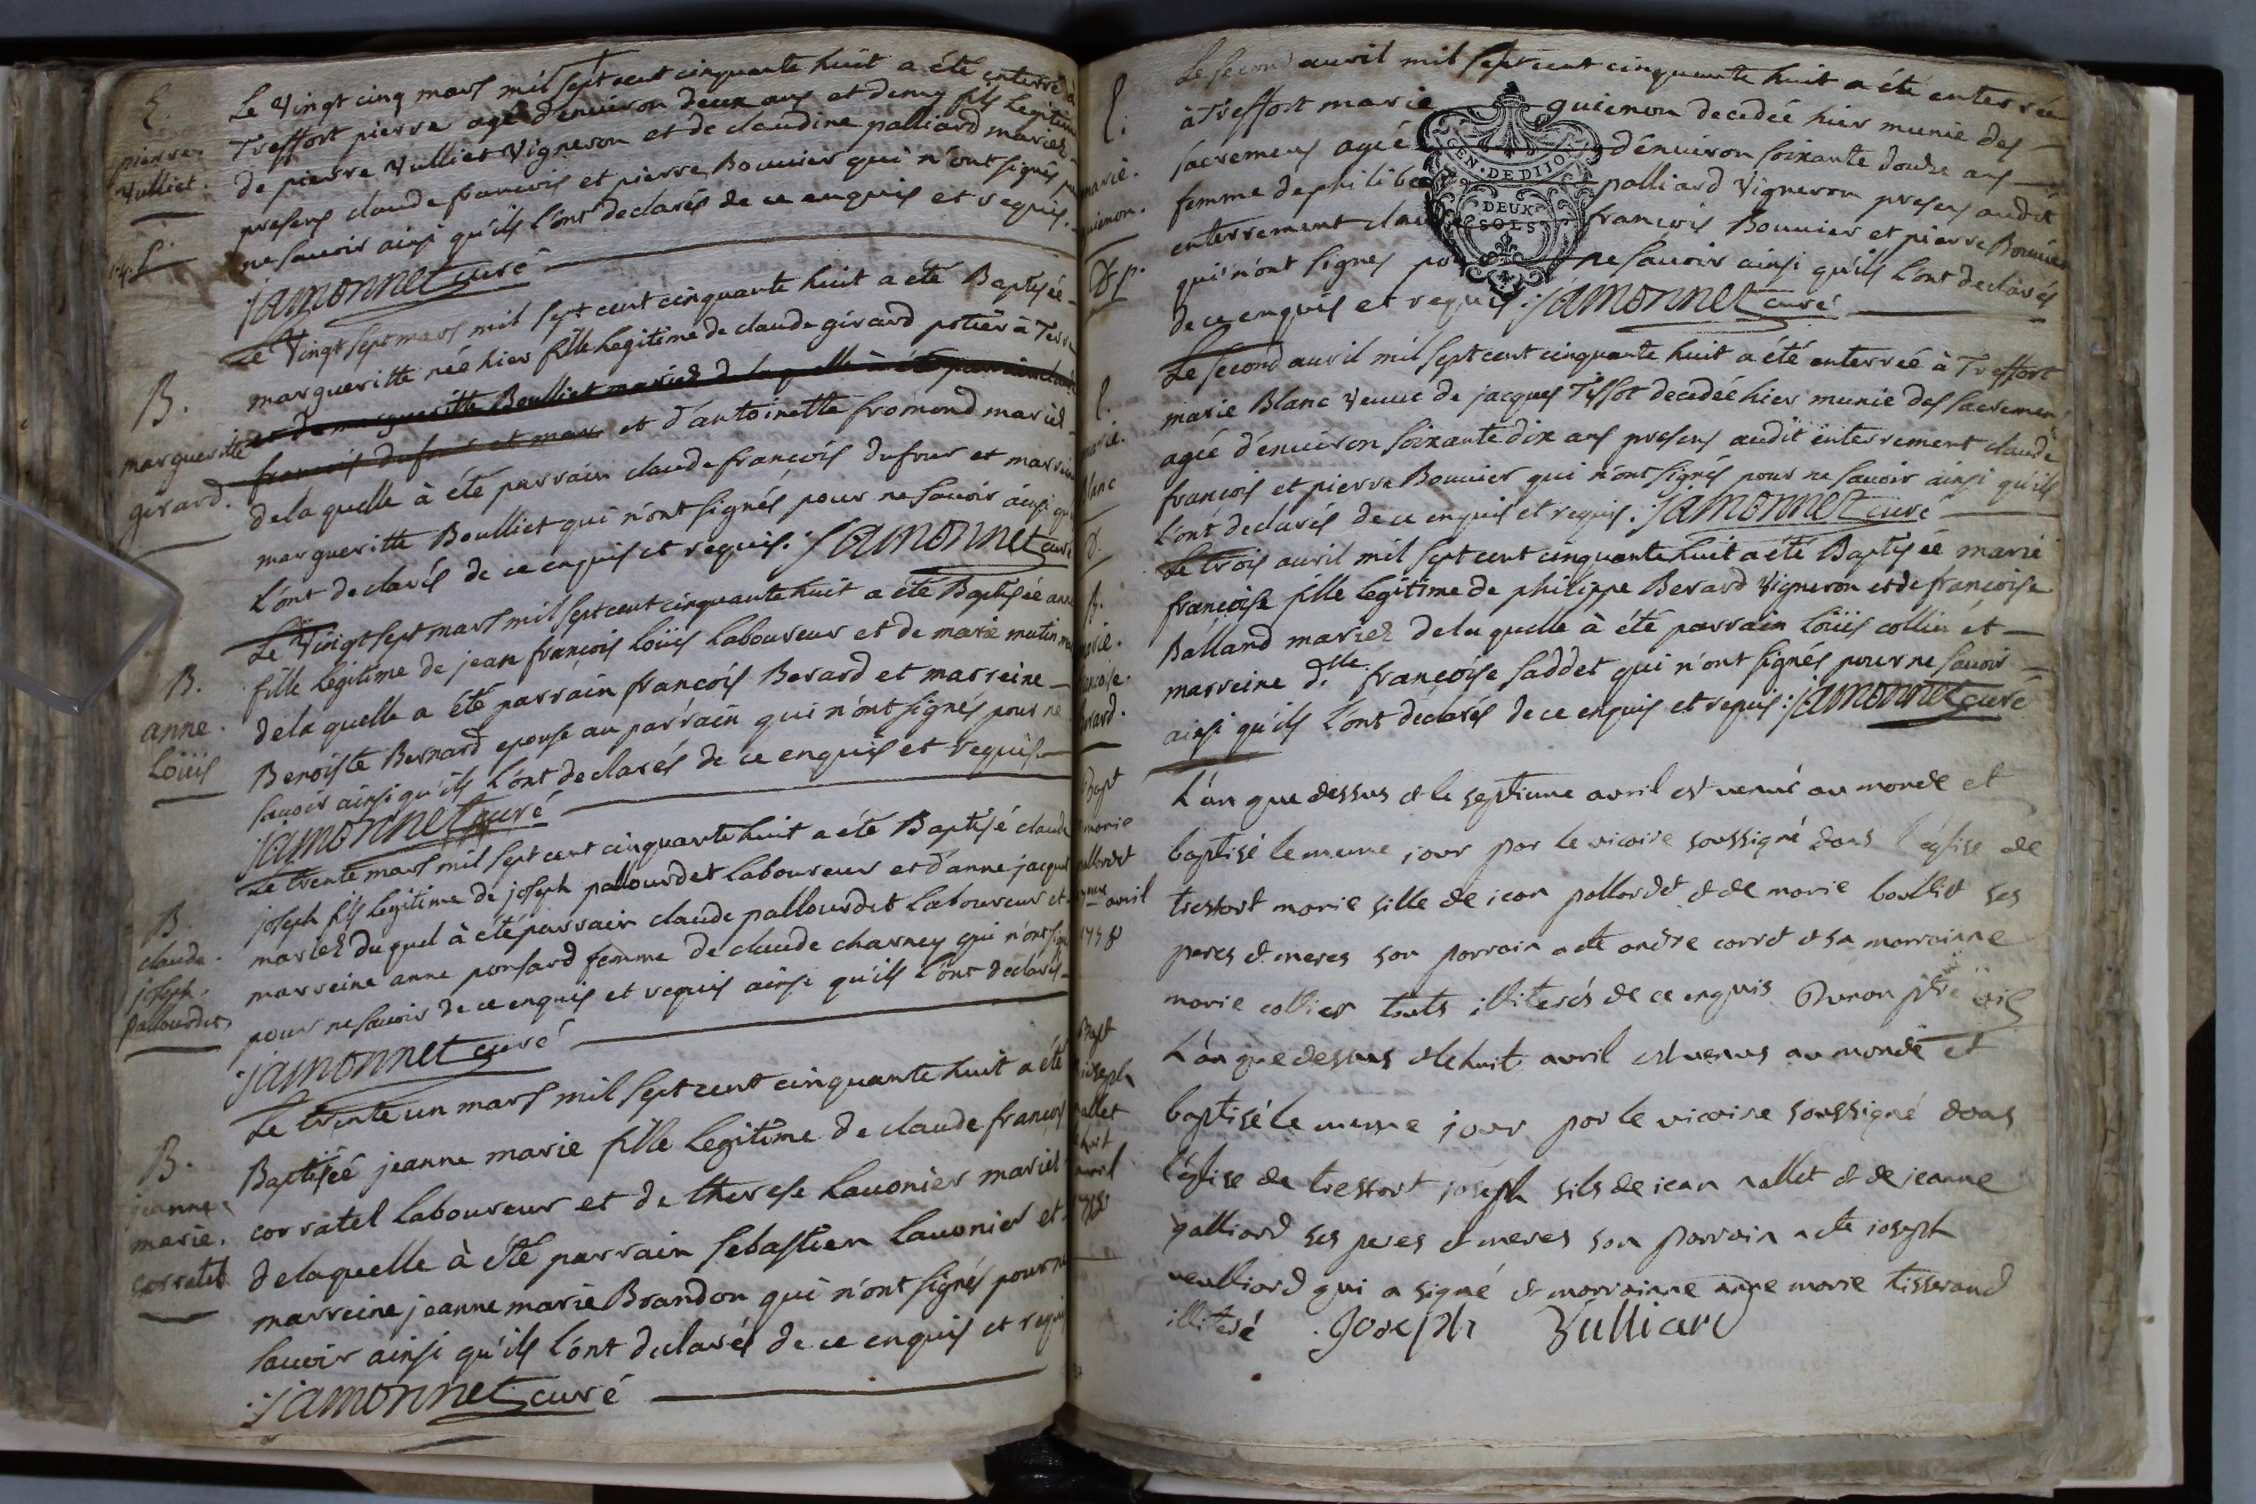 E.
pierre
Vulliet.
Le Vingt cinq mars mil sept cent cinquante huit a été enterré à
Treffort pierre agé d'environ deux ans et demy fils legitime
de pierre Vulliet Vigneron et de claudine palliard mariez
presens claude francois et pierre Bouvier qui n'ont signés
ne savoir ainsi qu'ils l'ont declarés de ce enquis et requis.
jamonnet curé
B.
margueritte
girard.
Le Vingt sept mars mil sept cent cinquante huit a été Baptisée
margueritte née hier fille legitime de claude girard potier à
et de margueritte Boulliet mariez de laquelle à été parrain claude
francois dufour et mar et d'antoinette fromond mariez
de la quelle à été parrain claude francois dufour et marreine
margueritte Boulliet qui n'ont signés pour ne savoir ainsi
l'ont declarés de ce enquis et requis. jamonnet curé
B.
anne.
Loüis
Le Vingt sept mars mil sept cent cinquante huit a été Baptisée anne
fille legitime de jean françois loüis laboureur et de marie mutin
de la quelle a été parrain françois Berard et marreine
Benoiste Bernard epouse au parrain qui n'ont signés pour ne
savoir ainsi qu'ils l'ont declarés de ce enquis et requis
jamonnet curé
B.
claude.
joseph.
pallourdet
Le trente mars mil sept cent cinquante huit a été Baptisé claude
joseph fils legitime de joseph pallourdet laboureur et d'anne
mariez du quel à été parrain claude pallourdet laboureur et
marreine anne ponsard femme de claude charney qui n'ont
pour ne savoir de ce enquis et requis ainsi qu'ils l'ont declarés
jamonnet curé
B.
jeanne
marie.
corratel
Le trente un mars mil sept cent cinquante huit a été
Baptisée jeanne marie fille legitime de claude francois
corratel laboureur et de therese lavonier mariez
de laquelle à été parrain sebastien lavonier et
marreine jeanne marie Brandon qui n'ont signés pour ne
savoir ainsi qu'ils l'ont declarés de ce enquis et requis
jamonnet curé
E.
marie.
guienon.
Le second avril mil sept cent cinquante huit a été enterrée
à Treffort marie guienon decedée hier munie des
sacremens agée d'environ soixante douze ans
femme de philibert palliard Vigneron presens audit
enterrement claude francois Bouvier et pierre Bouvier
qui n'ont signes pour ne savoir ainsi qu'ils l'ont declarés
de ce enquis et requis. jamonnet curé
GEN. DE DIJON
DEUX
SOLS
E.
marie.
blanc
Le second avril mil sept cent cinquante huit a été enterrée à Treffort
marie Blanc Veuve de jacques Tissot decedée hier munie des sacremens
agée d'environ soixante dix ans presens audit enterrement claude
françois et pierre Bouvier qui n'ont signés pour ne savoir ainsi qu'ils
l'ont declarés de ce enquis et requis. jamonnet curé
B.
marie.
françoise.
berard.
Le trois avril mil sept cent cinquante huit a été Baptisée marie
françoise fille legitime de philippe Berard Vigneron et de françoise
Balland mariez de la quelle à été parrain loüis collin et
marreine d.lle françoise saddet qui n'ont signés pour ne savoir
ainsi qu'ils l'ont declarés de ce enquis et requis: jamonnet curé
Bapt
marie
pallordet
7me avril
1758
L'an que dessus et le septieme avril est venuë au monde et
baptisé le meme jour par le vicaire soussigné dans l'église de
tresfort marie fille de jean pallordet et de marie boulliet ses
peres et meres son parrain a été andre corret et sa marrainne
marie collier touts illiterés de ce enquis Puron ptre vic
Bapt
joseph
nallet
huit
avril
1758
L'an que dessus et le huit avril est venus au monde et
baptisé le meme jour par le vicaire soussigné dans
l'église de tresfort joseph fils de jean nallet et de jeanne
palliard ses peres et meres son parrain a été joseph
veulliard qui a signé et marrainne anne marie tisserand
illiteré Joseph Vulliard